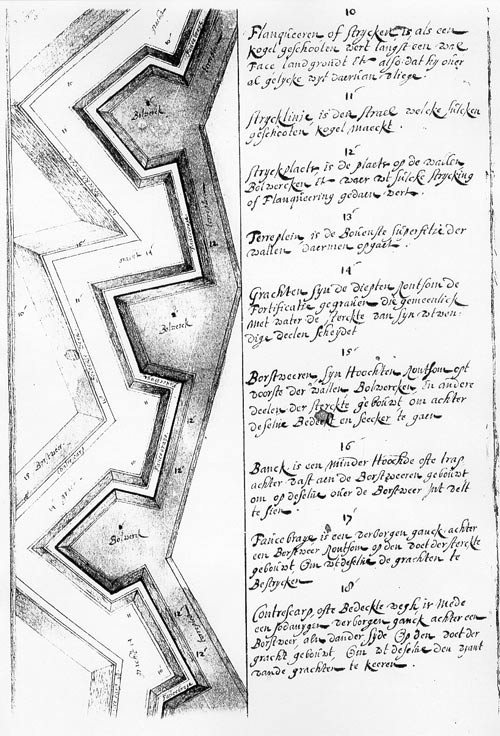 10
Flanqueeren of strycken, is als een
kogel geschooten wert langst een wal
Face landgrondt &c. also dat hy over
al gelycke wyt daervan vliege.
11
Strycklinie, is den strael welcke sulcken
geschooten kogel maeckt.
12
Stryckplaets is de plaets op de wallen
Bolwercken &c. waer wt sulcke strycking
of Flanqueering gedaen wert.
13
Terreplein is de Bovenste superfitie der
wallen daermen opgaet.
14
Grachten syn de diepten rontsom de
Fortificatie gegraven die gemeenlick
met water de sterckte van syn wtwen-
dige deelen scheydet
15
Borstweeren syn Hoochten rontsom opt
voorste der wallen Bolwercken, En andere
deelen der sterckte gebouwt om achter
deselve Bedeckt en seecker te gaen
16
Banck is een minder Hoochde ofte trap
achter vast aen de Borstweeren gebouwt
om op deselve over de Borstweer Int velt
te sien.
17
Faucebraye is een verborgen ganck achter
een Borstweer rontsom op den voet der sterckte
gebouwt Om wt deselve de grachten te
Bestrycken
18
Contrescarp, ofte Bedeckte wegh is mede
een sodanigen verborgen ganck achter een
Borstweer aen dander syde Op den voet der
gracht gebouwt Om wt deselve den
vande grachten te keeren.
Bolwerck
12
14
Bolwerck
15
Borstweer
12
Bolwerck
12
12